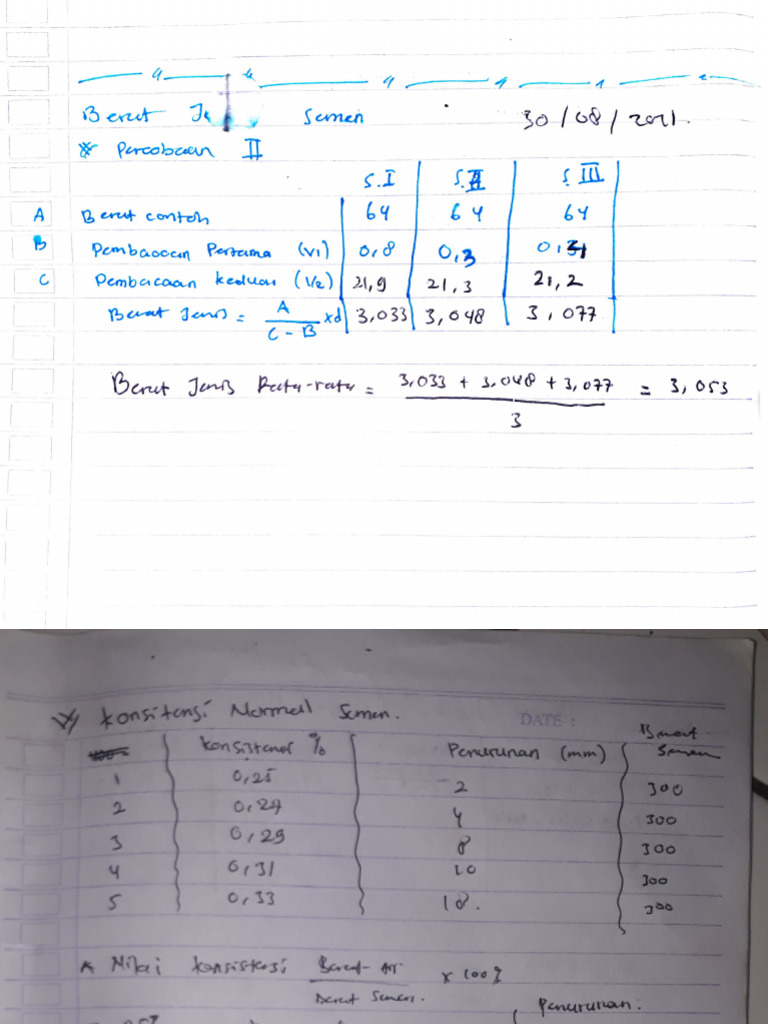 Berat Jenis Semen 30/08/2021
* Percobaan II
S.I S.II S.III
A Berat contoh 64 64 64
B Pembacaan Pertama (V1) 0,8 0,3 0,4
C Pembacaan kedua (V2) 21,9 21,3 21,2
Berat Jenis = A / C - B xd 3,033 3,048 3,077
Berat Jenis Rata-rata = 3,033 + 3,048 + 3,077 / 3 = 3,053
Konsitensi Normal Semen. DATE :
Konsistensi % Penurunan (mm) Berat Semen
1 0,25 2 300
2 0,27 4 300
3 0,29 8 300
4 0,31 10 300
5 0,33 18. 300
* Nilai Konsistesi Berat Air / Berat Semen. x 100%
Penurunan.